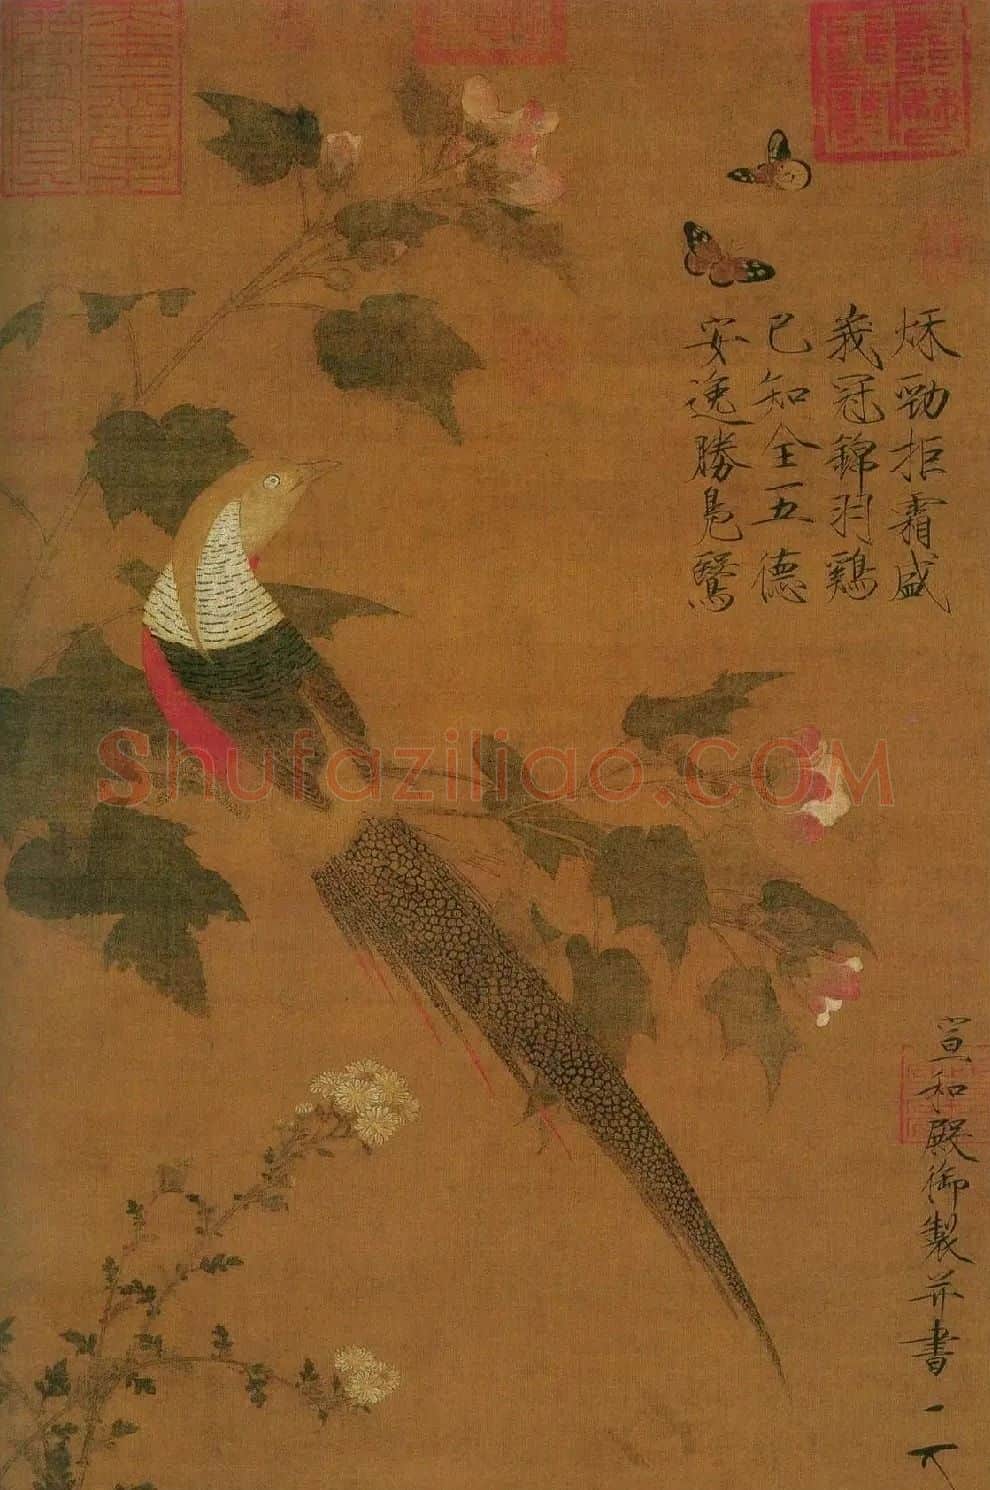 秋勁拒霜盛
峩冠錦羽鷄
已知全五德
安逸勝鳧鷖
宣和殿御製并書
Shufaziliao.COM